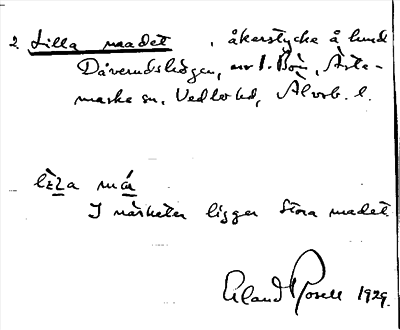 2. Lilla maadet, åkerstycke å hmd
Dåverudshögen, nr 1. Bön, Ärte-
marks sn, Vedbo hd, Älvsb. l.
lɛ̀l̲a má̲r̲
I närheten ligger Stora madet
Erland Rosell 1929.